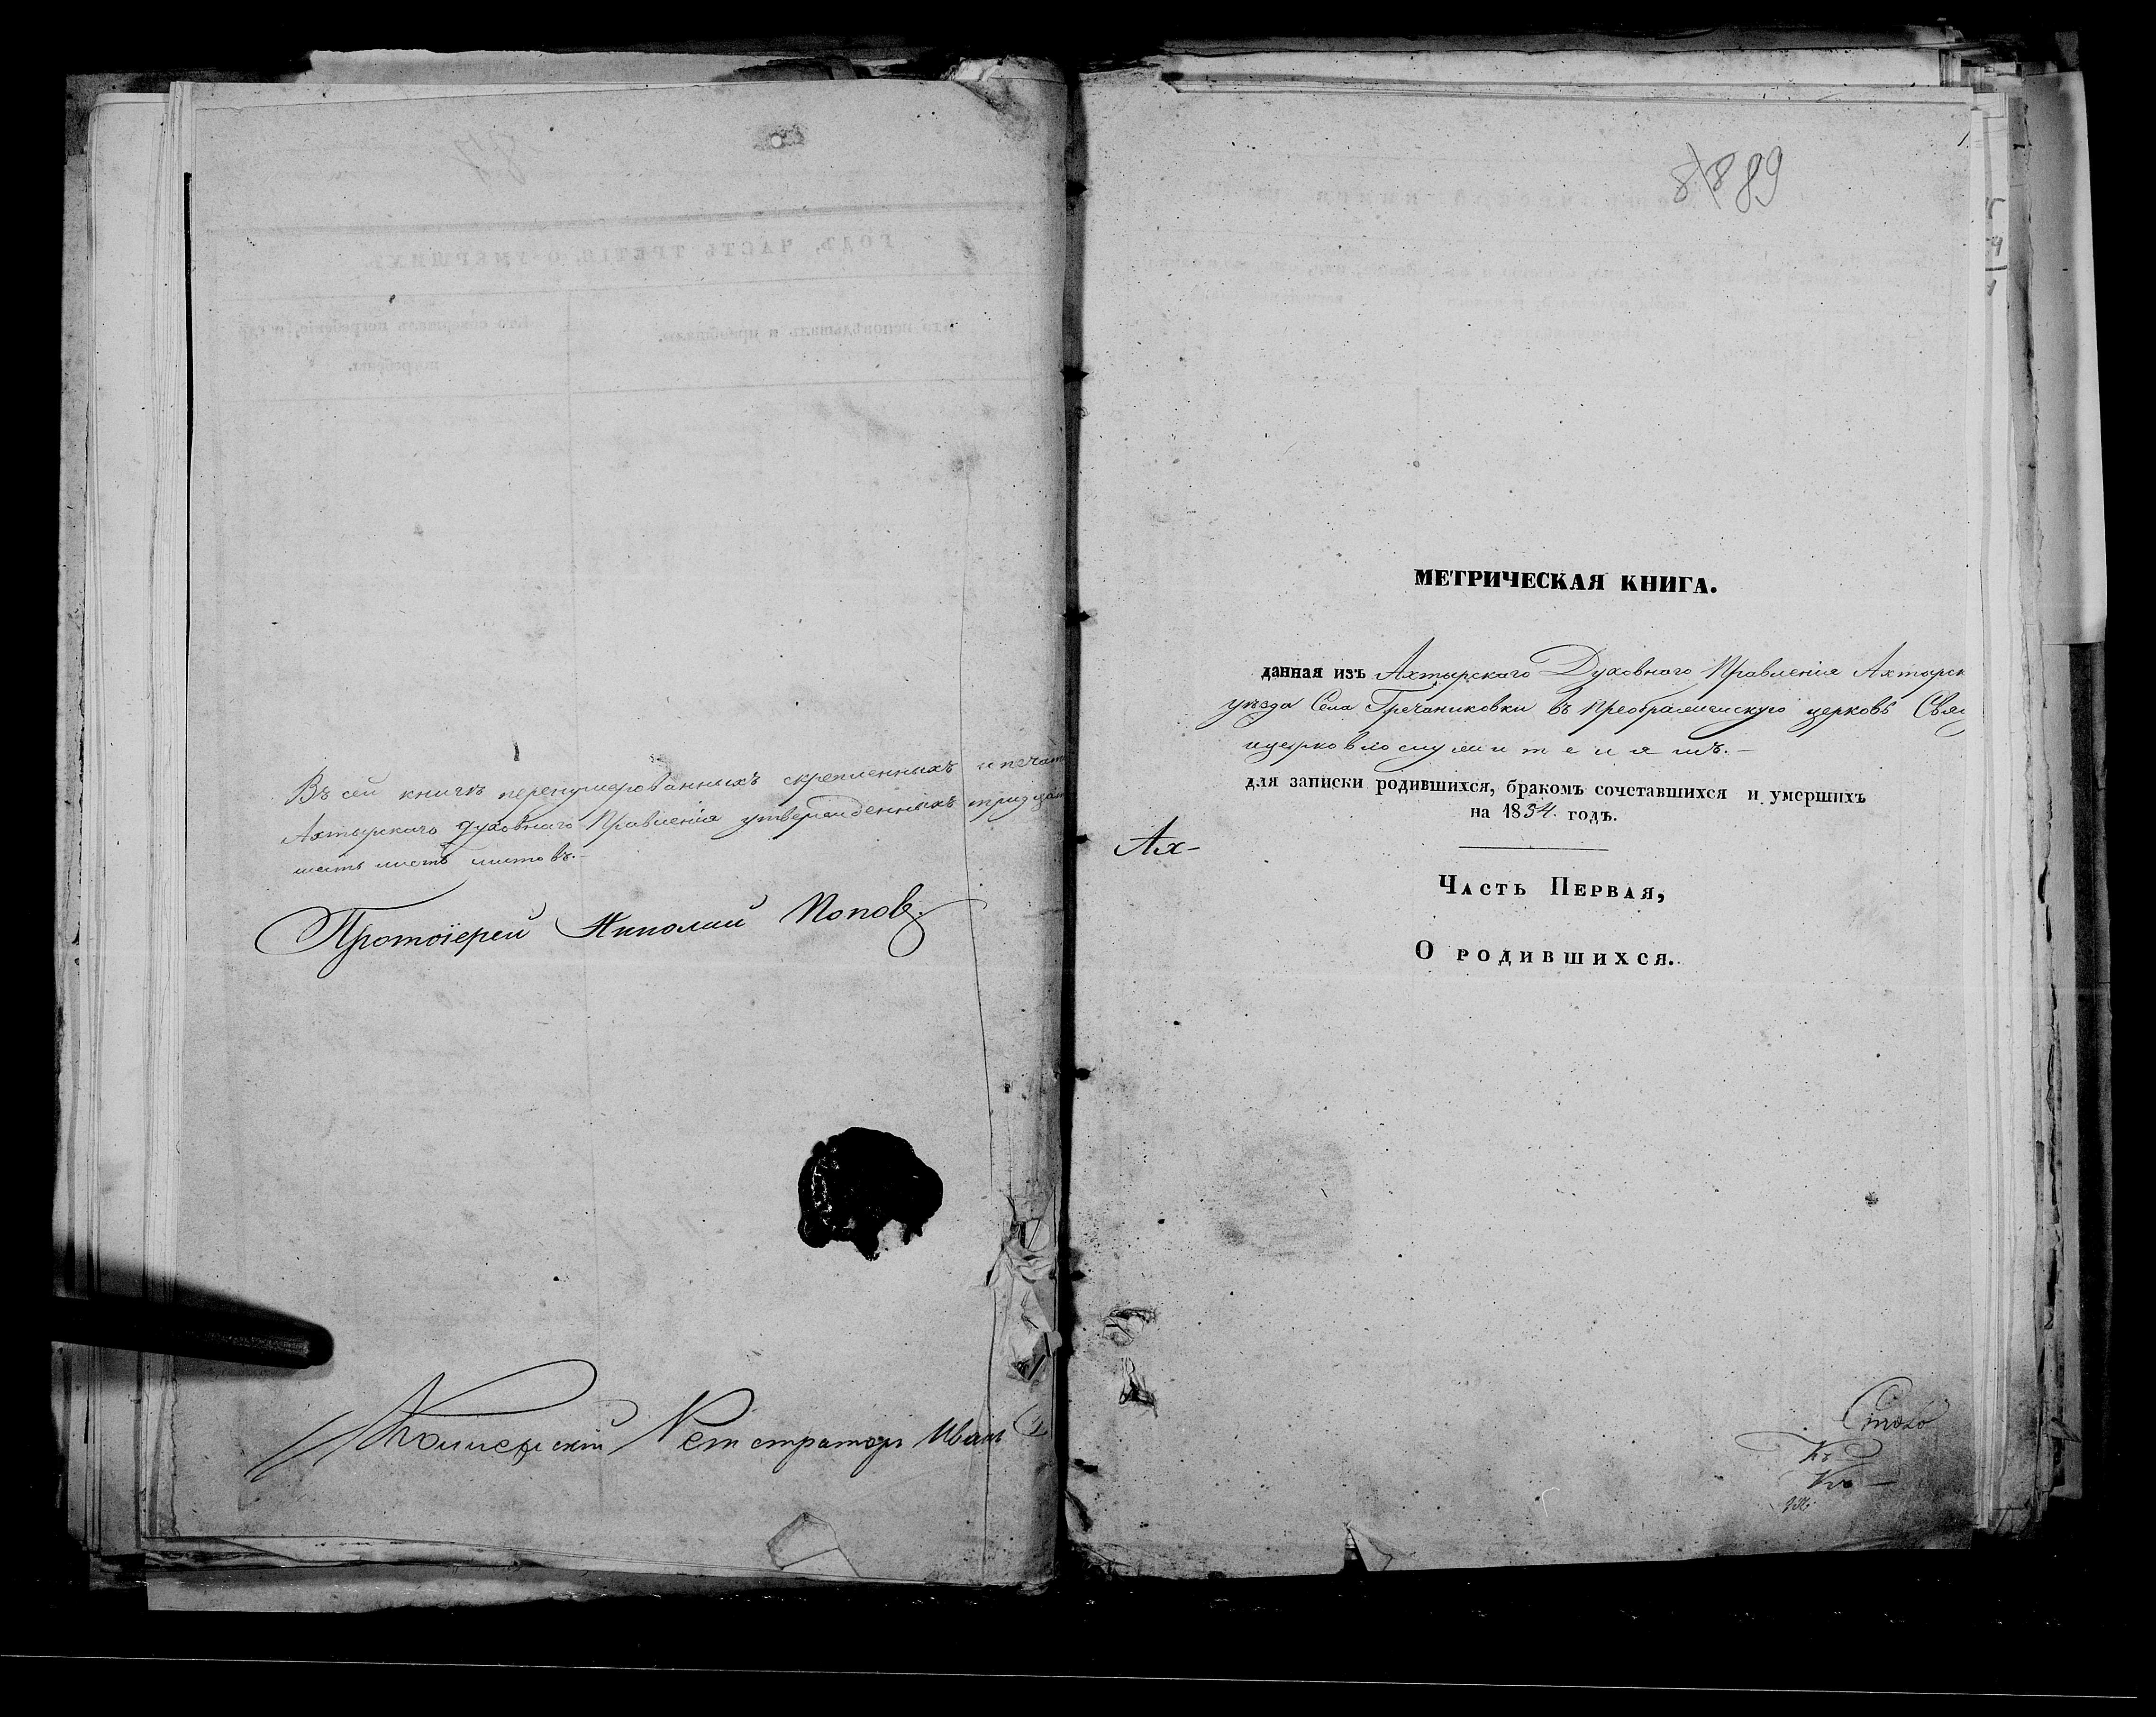 Въ сей книгѣ перенумерованныхъ скрепленныхъ и печат
Ахтырскаго Духовнаго Правленія утвержденныхъ тридцат
шесть листовъ.-
Протоіерей Николай Попов
Коллежскій Регистраторъ Иванъ
88 89
МЕТРИЧЕСКАЯ КНИГА.
данная изъ Ахтырскаго Духовнаго Правленія Ахтырск
уѣзда Села Гречаниковки въ Преображенскую церковь Свящ
ицерковнослужителямъ.-
для записки родившихся, бракомъ сочетавшихся и умершихъ
на 1854. годъ.
Ах-
Часть Первая,
О родившихся.